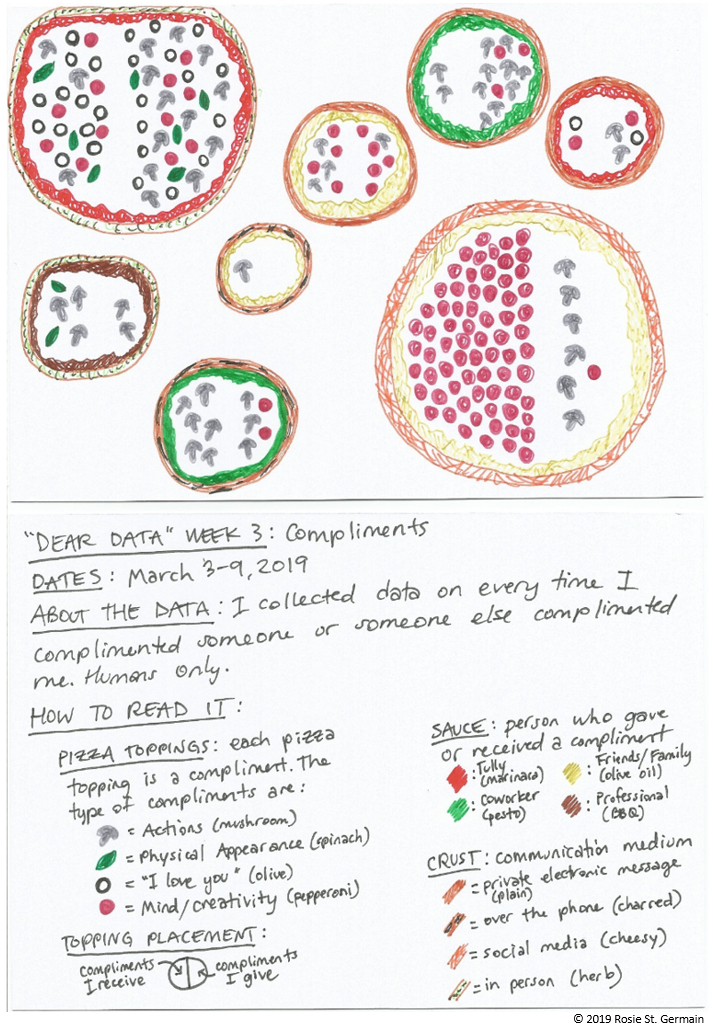 "DEAR DATA" WEEK 3: Compliments
DATES: March 3-9, 2019
ABOUT THE DATA: I collected data on every time I
complimented someone or someone else complimented
me. Humans only.
HOW TO READ IT:
PIZZA TOPPINGS: each pizza
topping is a compliment. The
type of compliments are:
= Actions (mushroom)
= Physical Appearance (spinach)
= "I love you" (olive)
= Mind/creativity (pepperoni)
TOPPING PLACEMENT:
compliments
I receive
compliments
I give
SAUCE: person who gave
or received a compliment
: Tully
(marinara)
: Friends/Family
(olive oil)
: Coworker
(pesto)
: Professional
(BBQ)
CRUST: communication medium
= private electronic message
(plain)
= over the phone (charred)
= social media (cheesy)
= in person (herb)
© 2019 Rosie St. Germain